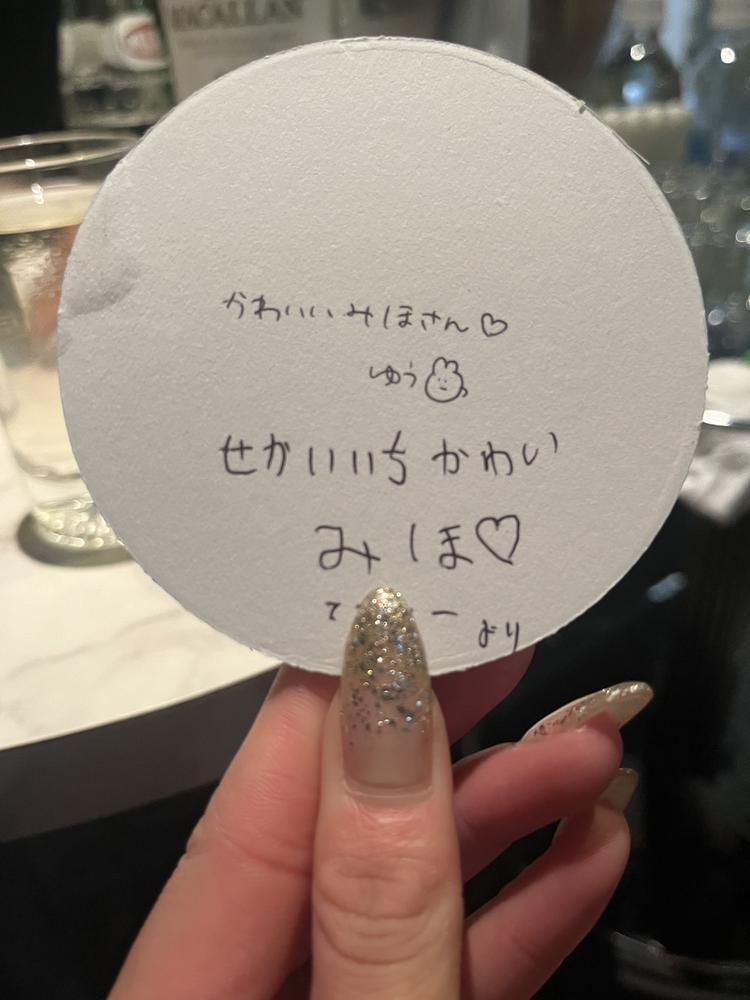 MACALLAN
かわいいみほさん♡
ゆう
せかいいち かわいい
みほ♡
より